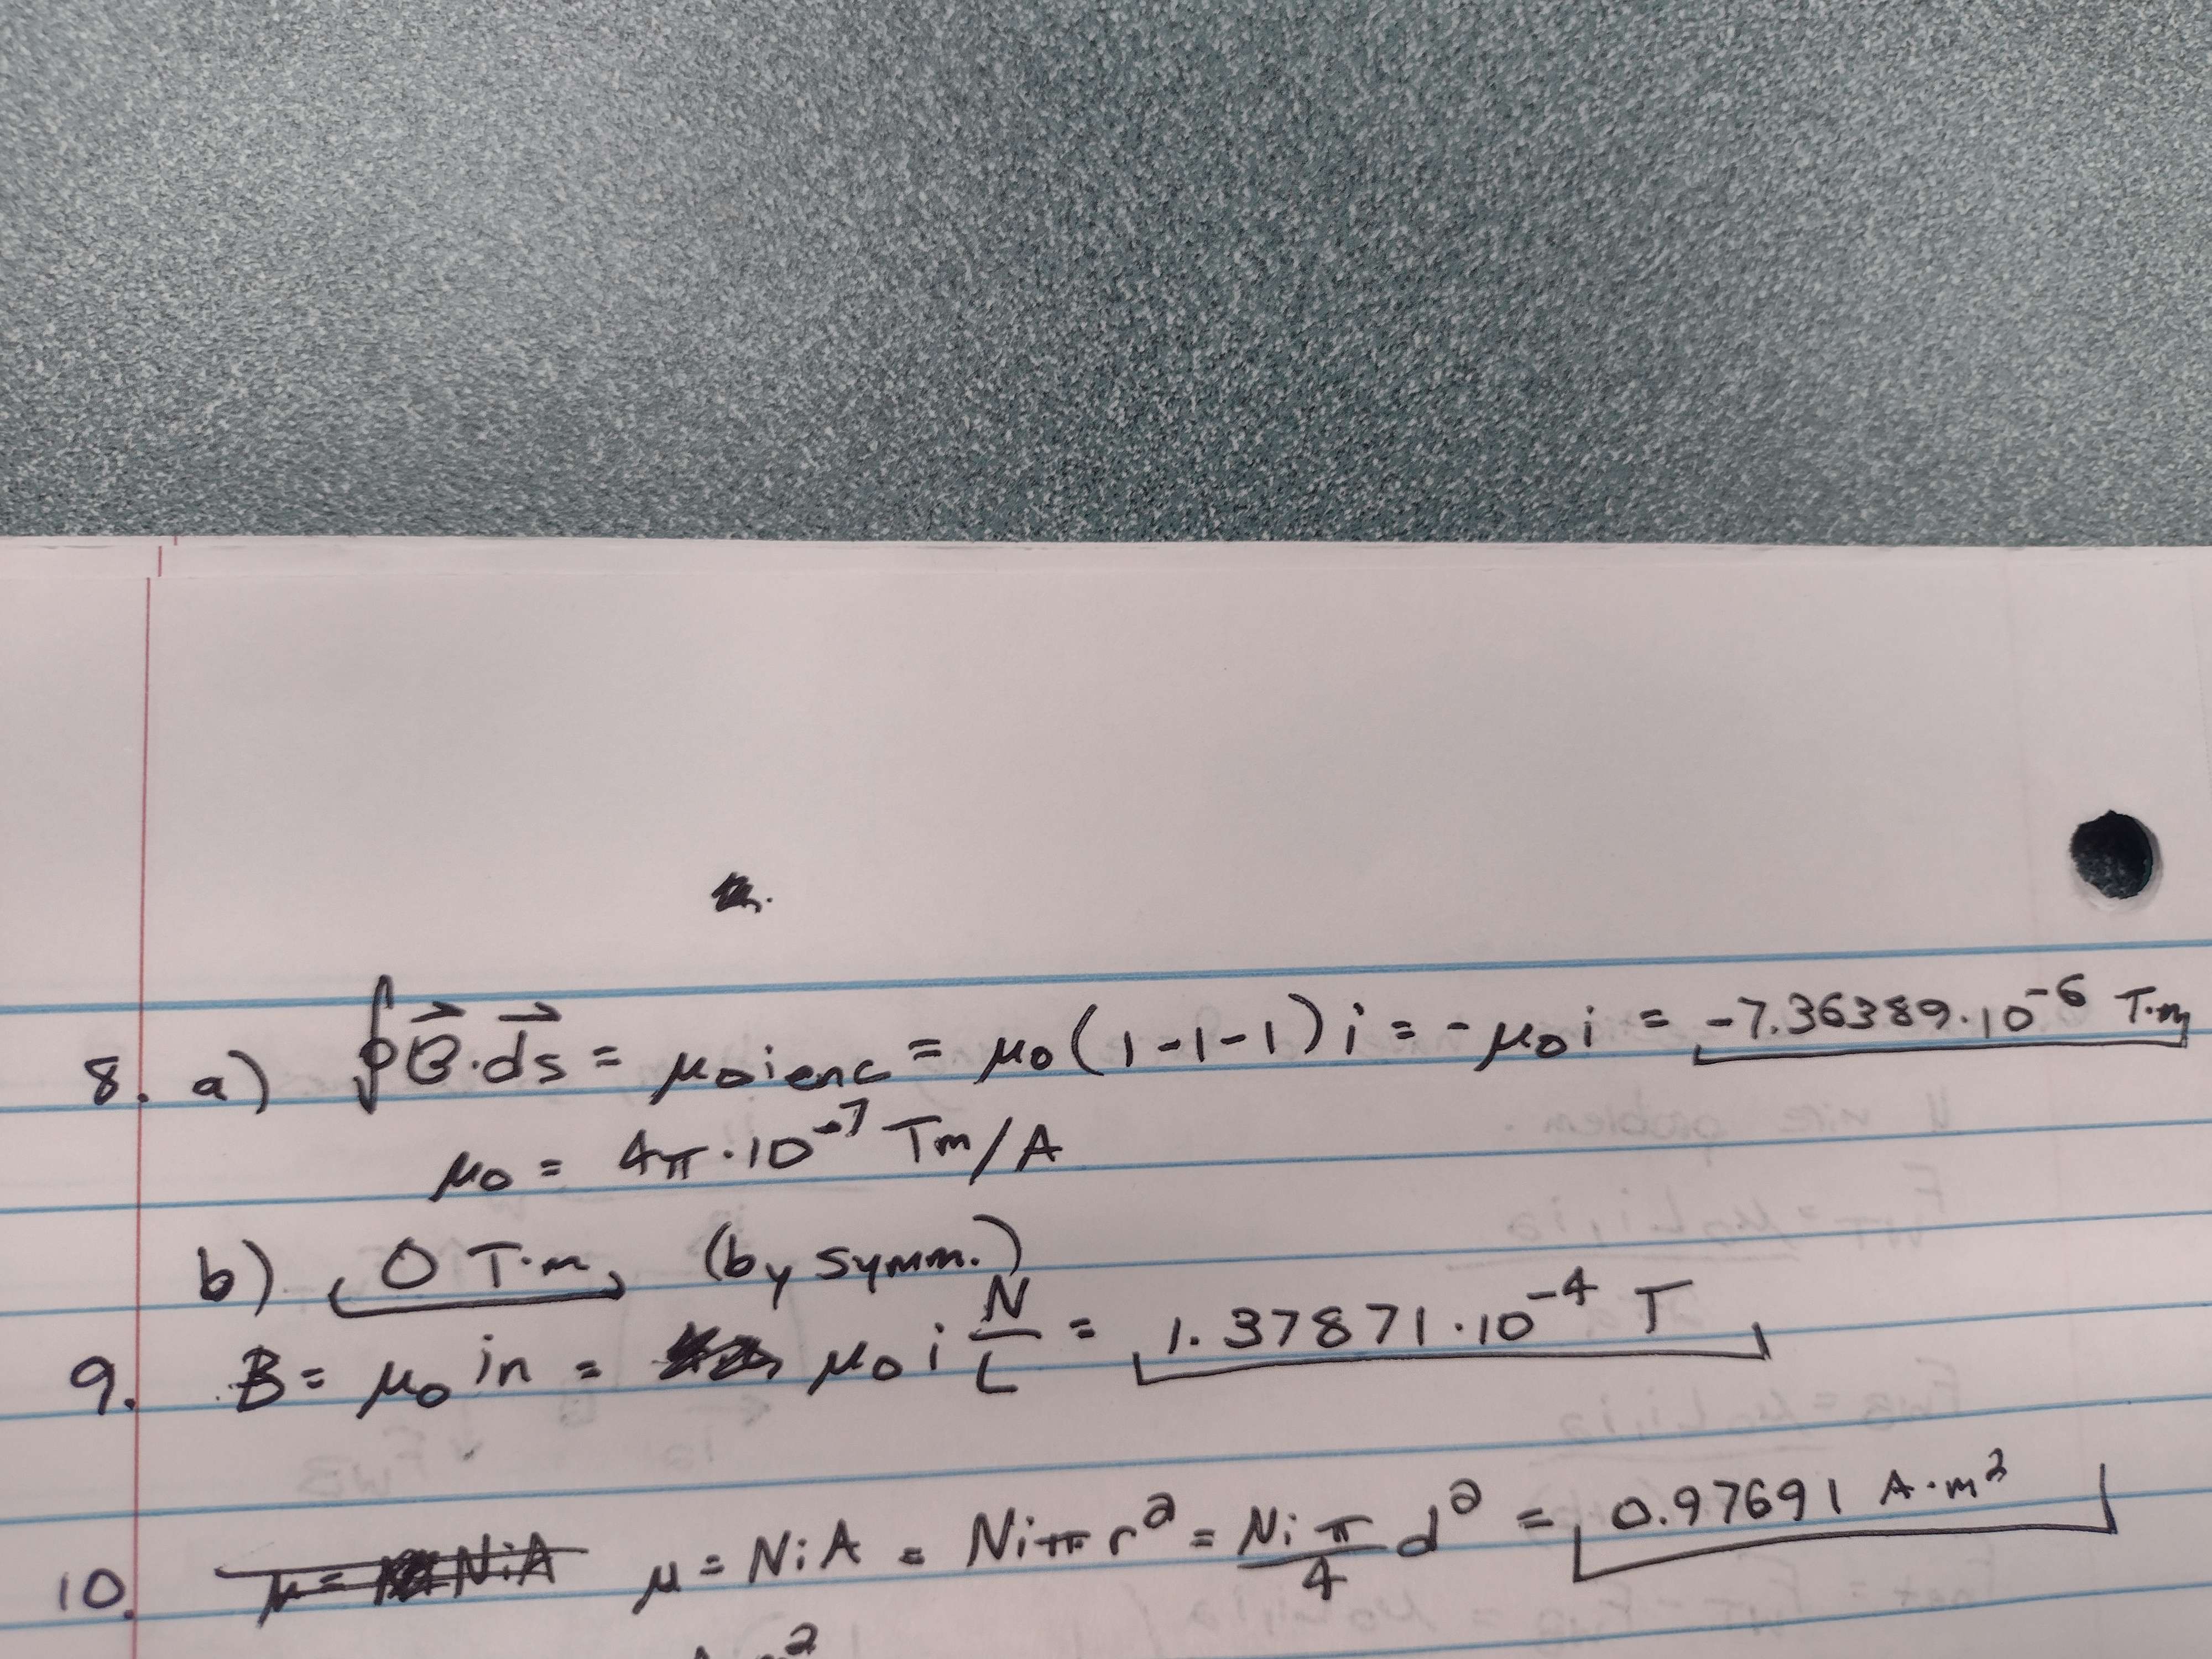 8. a) ∮B⃗·ds⃗ = μ₀i enc = μ₀(1-1-1)i = -μ₀i = -7.36389·10⁻⁶ T·m
μ₀ = 4π·10⁻⁷ Tm/A
b) 0 T·m (by symm.)
9. B = μ₀in = μ₀i N/L = 1.37871·10⁻⁴ T
10. μ = NiA μ = NiA = Niπr² = Niπ/4 d² = 0.97691 A·m²